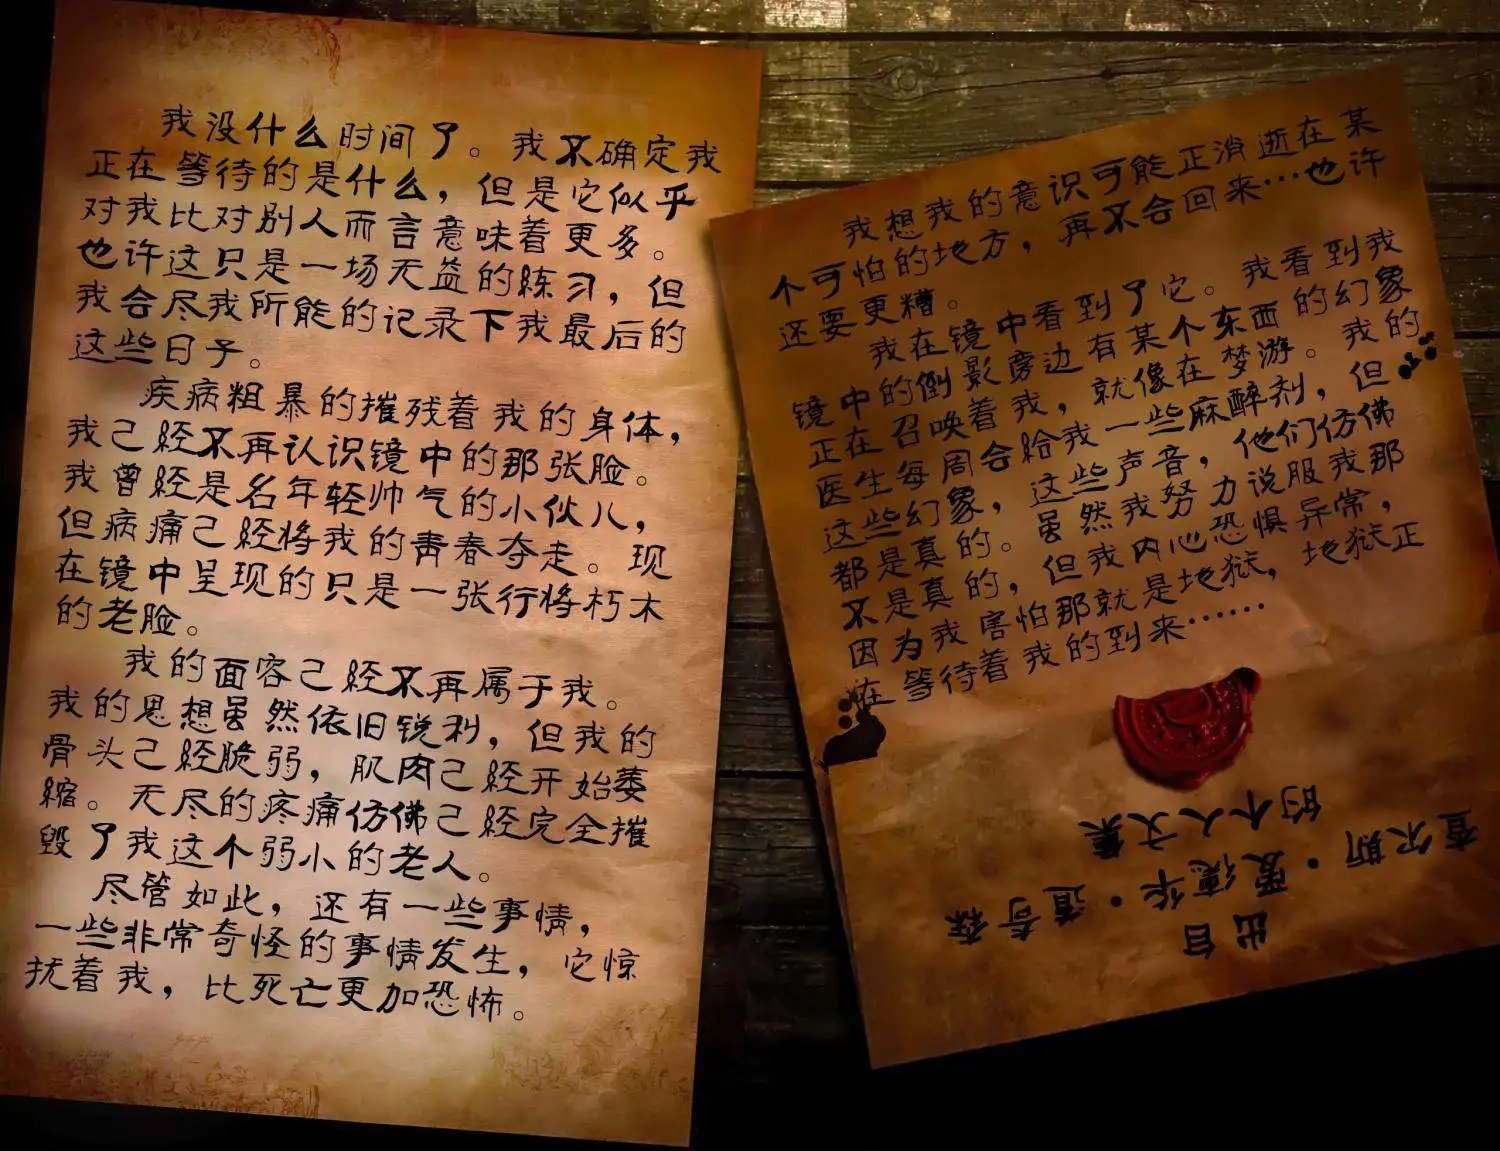 我没什么时间了。我不确定我
正在等待的是什么，但是它似乎
对我比对别人而言意味着更多。
也许这只是一场无益的练习，但
我会尽我所能的记录下我最后的
这些日子。
疾病粗暴的摧残着我的身体，
我己经不再认识镜中的那张脸。
我曾经是名年轻帅气的小伙儿，
但病痛己经将我的青春夺走。现
在镜中呈现的只是一张行将朽木
的老脸。
我的面容己经不再属于我。
我的思想虽然依旧锐利，但我的
骨头己经脆弱，肌肉己经开始萎
縮。无尽的疼痛仿佛己经完全摧
毁了我这个弱小的老人。
尽管如此，还有一些事情，
一些非常奇怪的事情发生，它惊
扰着我，比死亡更加恐怖。
我想我的意识可能正消逝在某
个可怕的地方，再不会回来…也许
还要更糟。
我在镜中看到了它。我看到我
镜中的倒影旁边有某个东西的幻象
正在召唤着我，就像在梦游。我的
医生每周会给我一些麻醉剂，但
这些幻象，这些声音，他们仿佛
都是真的。虽然我努力说服我那
不是真的，但我内心恐惧异常，
因为我害怕那就是地狱，地狱正
在等待着我的到来……
出自
查尔斯·爱德华·道奇森
的个人文集